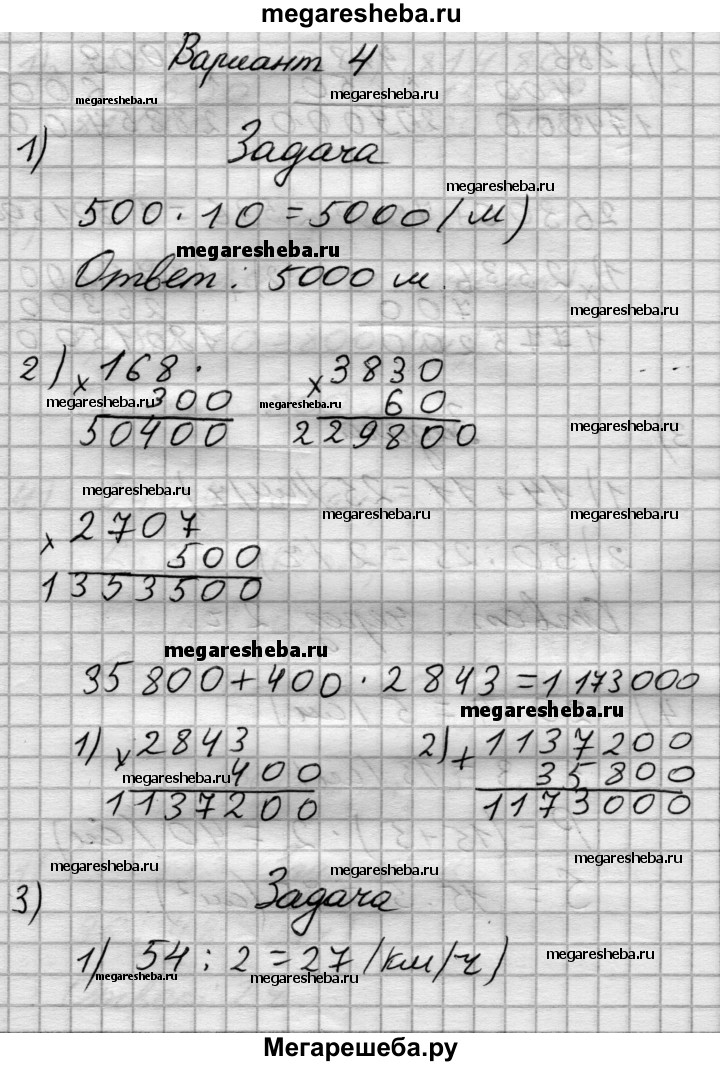 megaresheba.ru
Вариант 4
megaresheba.ru megaresheba.ru
1) Задача
megaresheba.ru
500 · 10 = 5000 (м)
megaresheba.ru
Ответ: 5000 м.
megaresheba.ru
2) × 168 · × 3830
300 60
megaresheba.ru megaresheba.ru
50400 229800
megaresheba.ru
megaresheba.ru
× 2707
megaresheba.ru megaresheba.ru
500
1353500
megaresheba.ru
35 800 + 400 · 2 843 = 1 173 000
megaresheba.ru
1) × 2843 2) + 1137200
megaresheba.ru 400 35800
1137200 1173000
megaresheba.ru megaresheba.ru megaresheba.ru
3) Задача
1) 54 : 2 = 27 (км/ч)
megaresheba.ru
megaresheba.ru megaresheba.ru megaresheba.ru
Мегарешеба.ру